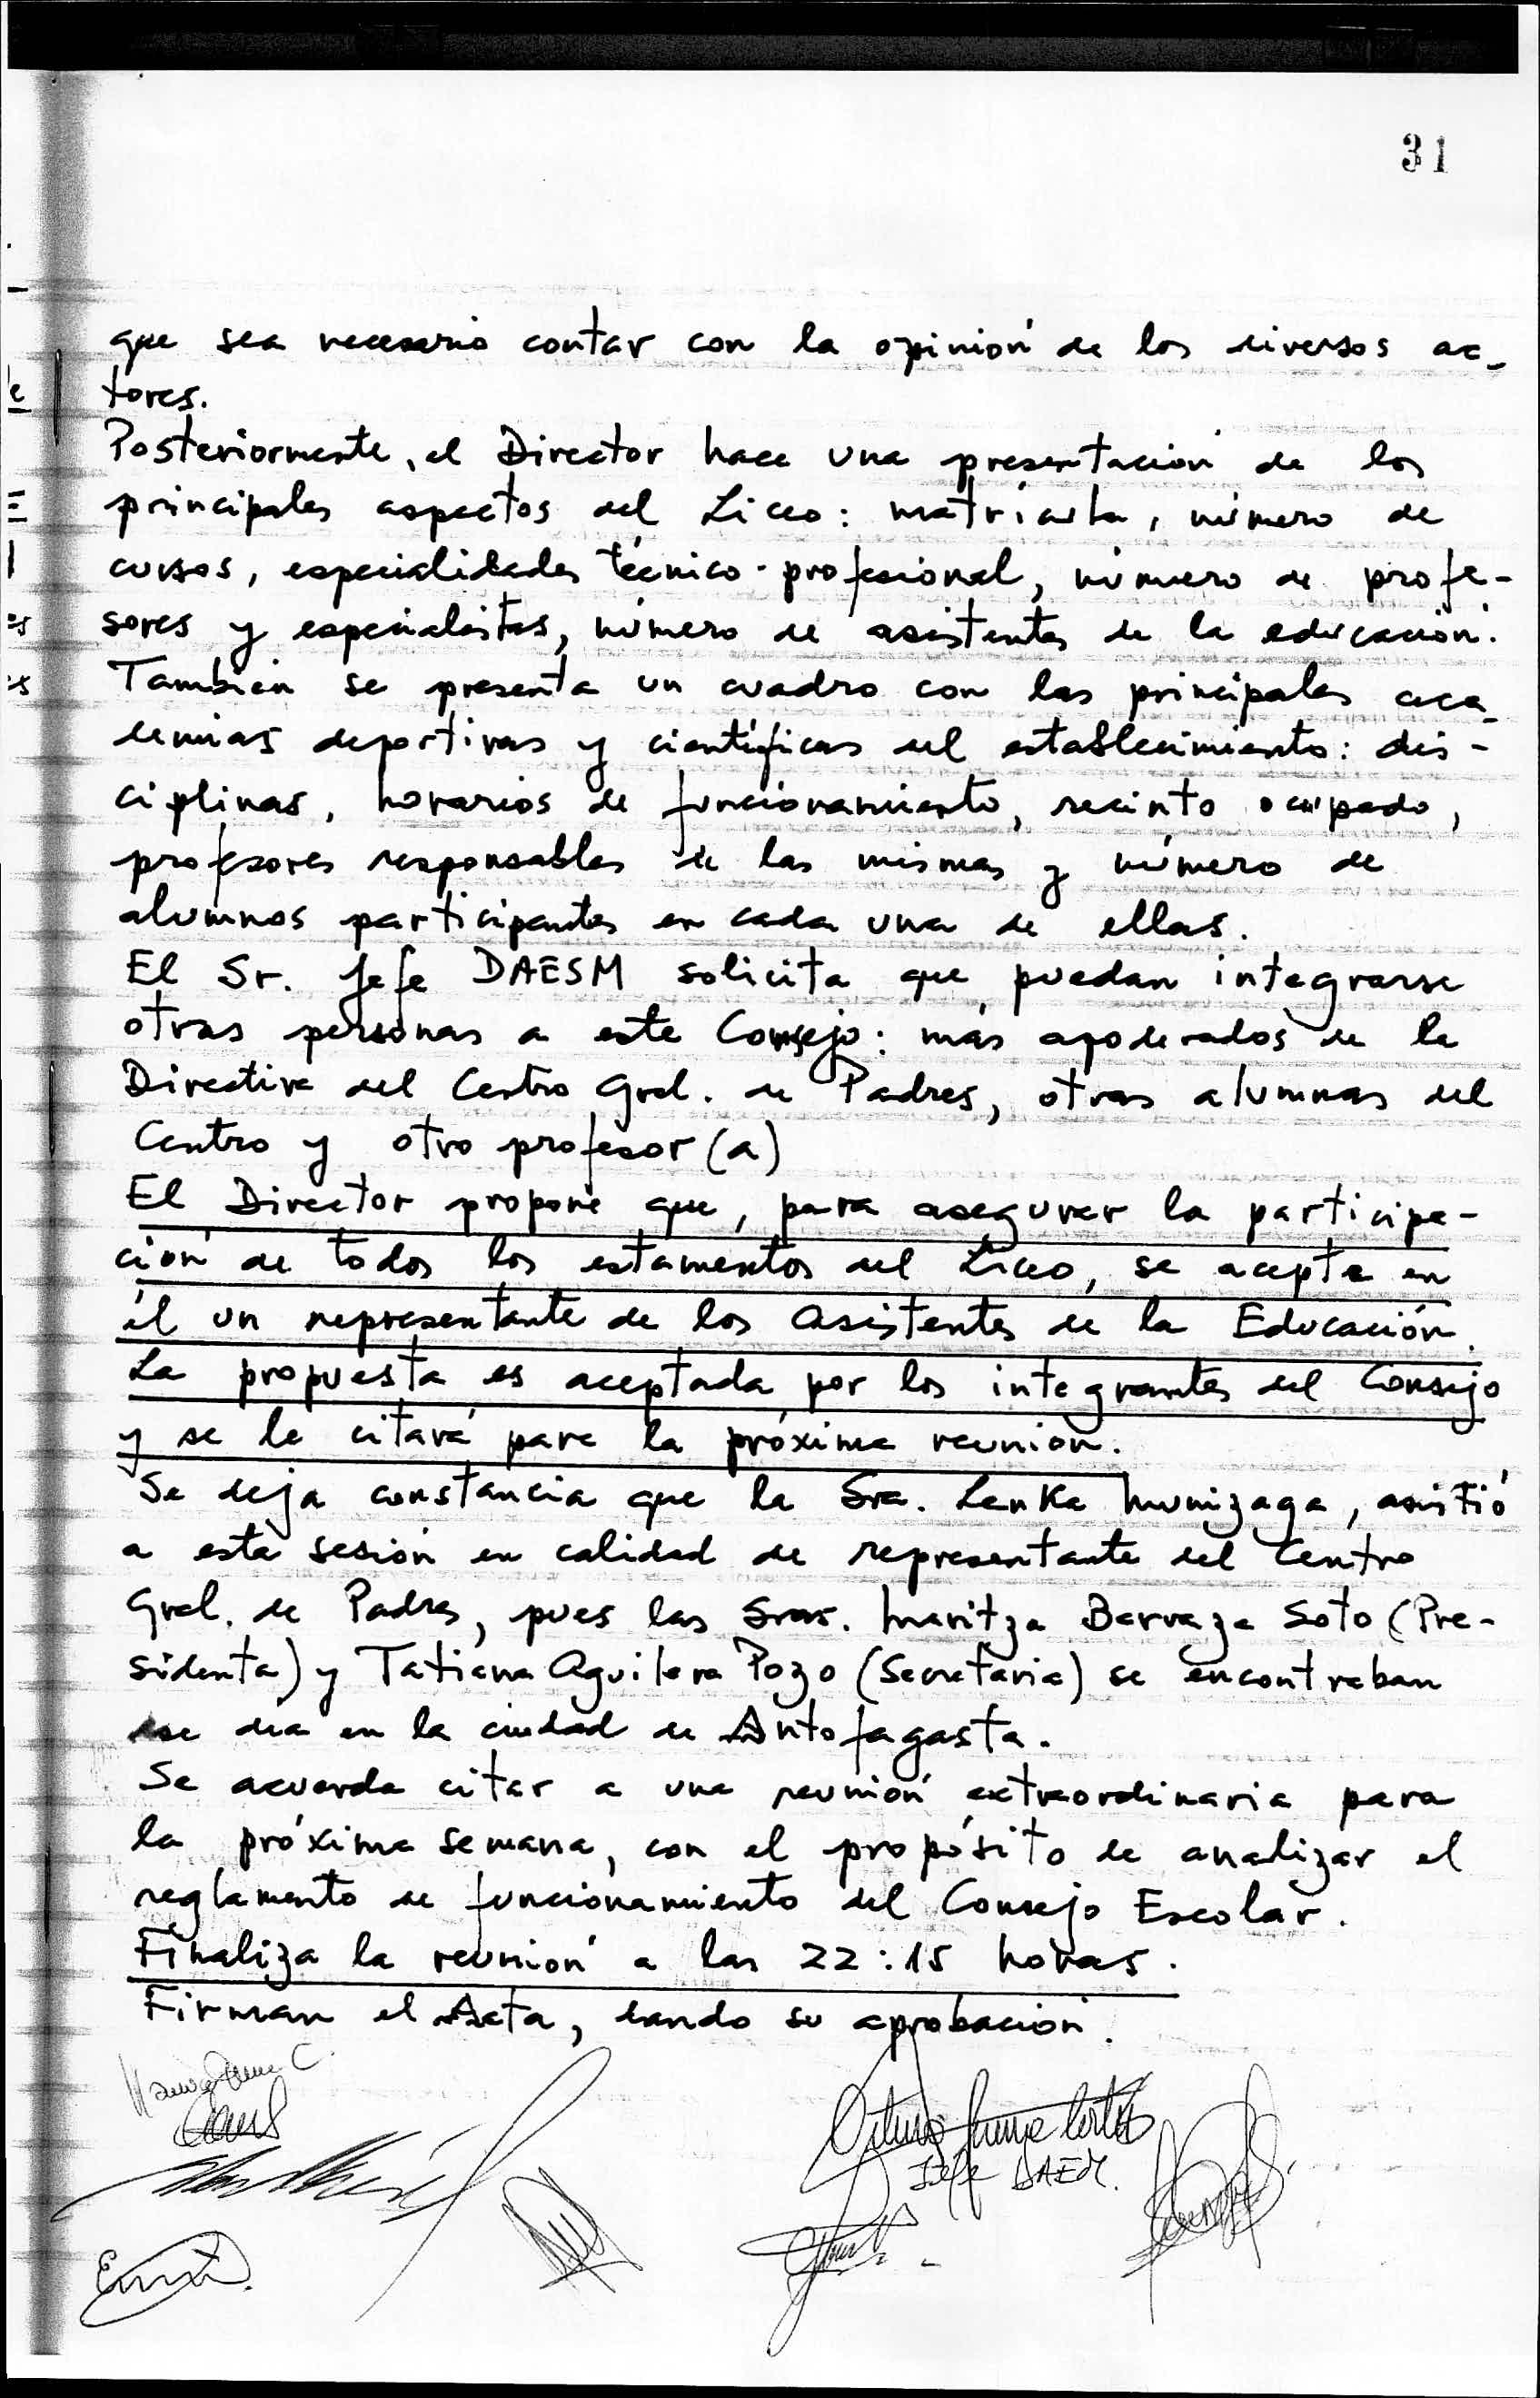 31
que sea necesario contar con la opinión de los diversos ac-
tores.
Posteriormente, el Director hace una presentación de los
principales aspectos del Liceo: matrícula, número de
cursos, especialidades técnico-profesional, número de profe-
sores y especialistas, número de asistentes de la educación.
También se presenta un cuadro con las principales aca-
demias deportivas y científicas del establecimiento: dis-
ciplinas, horarios de funcionamiento, recinto ocupado,
profesores responsables de las mismas y número de
alumnos participantes en cada una de ellas.
El Sr. Jefe DAESM solicita que puedan integrarse
otras personas a este Consejo: más apoderados de la
Directiva del Centro Gral. de Padres, otras alumnas del
Centro y otro profesor (a)
El Director propone que, para asegurar la participa-
ción de todos los estamentos del Liceo, se acepte en
él un representante de los Asistentes de la Educación.
La propuesta es aceptada por los integrantes del Consejo
y se le citará para la próxima reunión.
Se deja constancia que la Sra. Lenka Munizaga, asistió
a esta sesión en calidad de representante del Centro
Gral. de Padres, pues las Sras. Maritza Barraza Soto (Pre-
sidenta) y Tatiana Aguilera Pozo (Secretaria) se encontraban
ese día en la ciudad de Antofagasta.
Se acuerda citar a una reunión extraordinaria para
la próxima semana, con el propósito de analizar el
reglamento de funcionamiento del Consejo Escolar.
Finaliza la reunión a las 22:15 horas.
Firman el Acta, dando su aprobación.
Jefe DAEM.